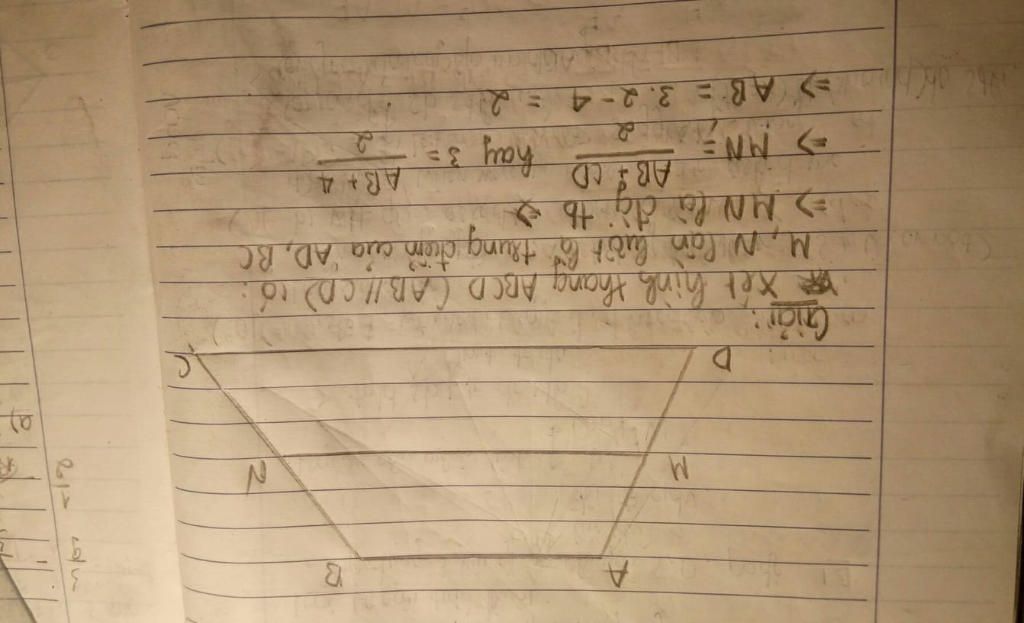 A B
M N
D C
Giải:
Xét hình thang ABCD (AB//CD) có:
M, N lần lượt là trung điểm của AD, BC
=> MN là đg tb =>
=> MN = \frac{AB+CD}{2} hay 3 = \frac{AB+4}{2}
=> AB = 3.2-4 = 2